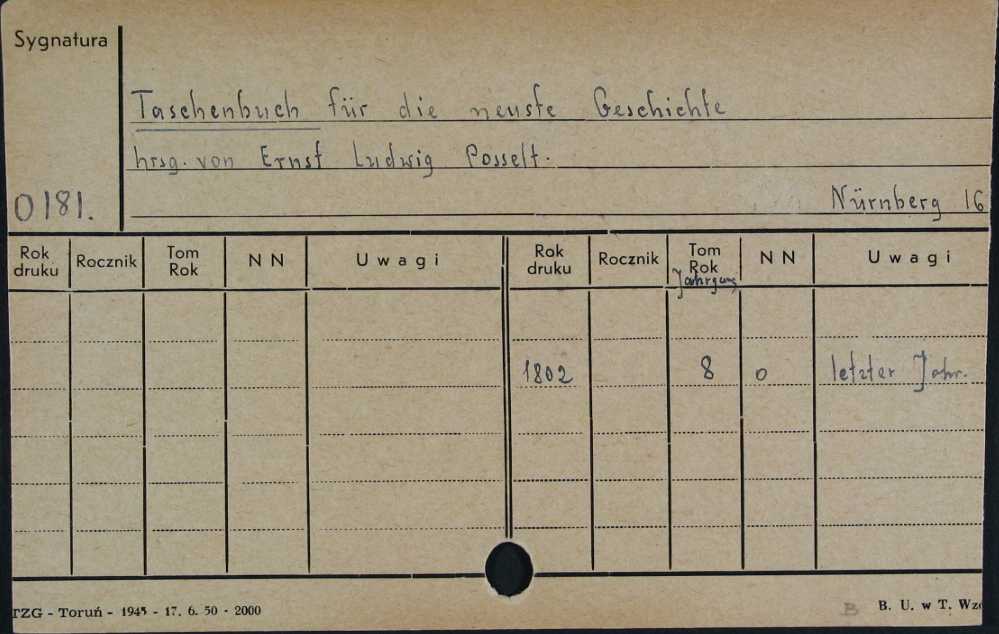 Sygnatura
Taschenbuch für die neuste Geschichte
hrsg. von Ernst Ludwig Posselt.
0181.
Nürnberg 16
Rok druku Rocznik Tom Rok NN Uwagi Rok druku Rocznik Tom Rok Jahrgang NN Uwagi
1802 8 0 letzter Jahr.
TZG - Toruń - 1945 - 17. 6. 50 - 2000
B B. U. w T. Wzó